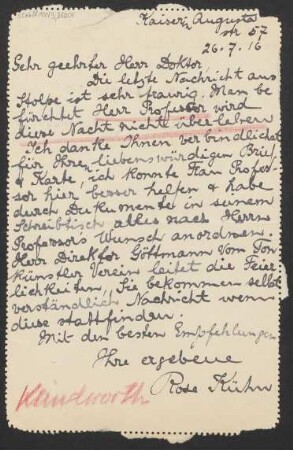 Kaiserin Augusta
str 57
26.7.16
Sehr geehrter Herr Doktor
Die letzte Nachricht aus
Stolpe ist sehr traurig. Man be
fürchtet Herr Professor wird
diese Nacht nicht überleben
Ich danke Ihnen verbindlichst
für Ihren liebenswürdigen Brief
& Karte, ich konnte Frau Profes-
sor hier besser helfen & habe
durch Dokumente in seinem
Schreibtisch alles nach Herrn
Professors Wunsch anordnen.
Herr Direktor Göttmann vom Ton
künstler Verein leitet die Feier
lichkeiten, Sie bekommen selbst
verständlich Nachricht wenn
diese stattfinden.
Mit den besten Empfehlungen
Ihre ergebene
Rose Kühn
Klindworth